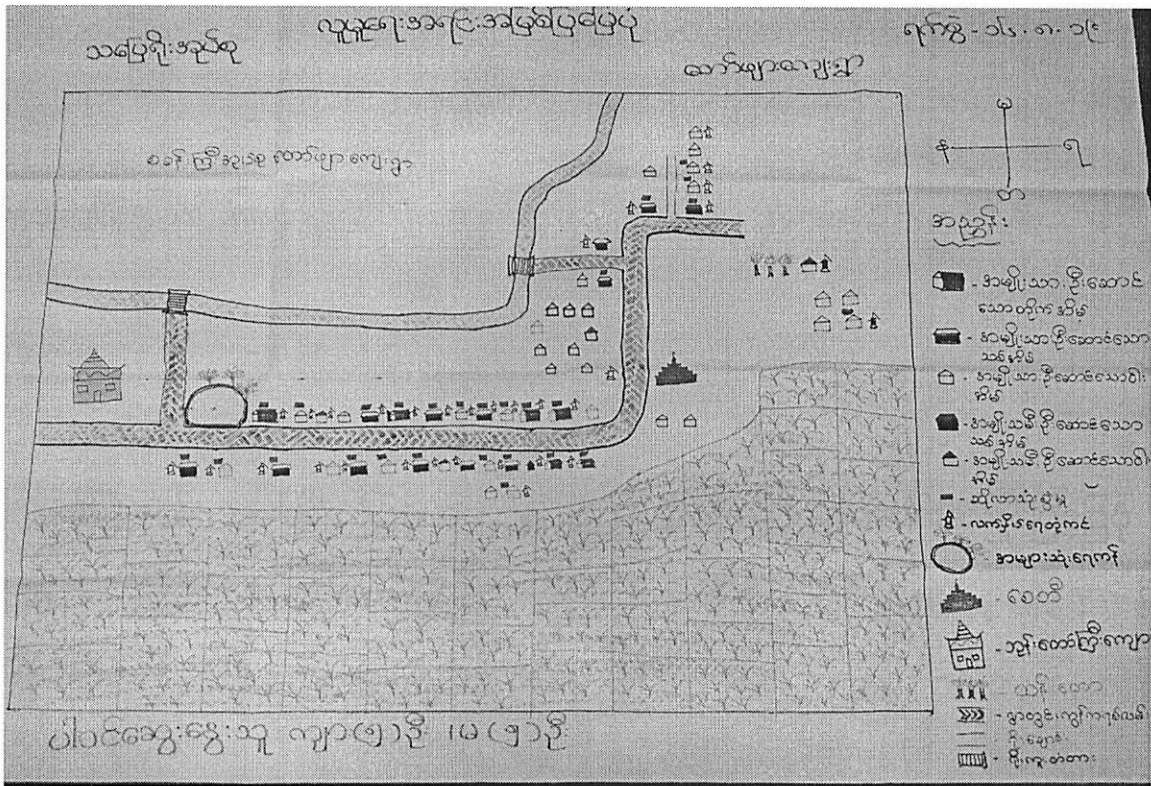 လူမှုရေးအရင်းအမြစ်ပြမြေပုံ
သပြေရိုးအုပ်စု
ရက်စွဲ - ၁၆.၈.၁၉
တော်ဖျားကျေးရွာ
စခန်းကြီးအုပ်စု တော်ဖျာကျေးရွာ
မ
န ရ
တ
အညွှန်း
- အမျိုးသားဦးဆောင်
သောတိုက်အိမ်
- အမျိုးသားဦးဆောင်သော
သစ်အိမ်
- အမျိုးသားဦးဆောင်သောဝါး
အိမ်
- အမျိုးသမီးဦးဆောင်သော
သစ်အိမ်
- အမျိုးသမီးဦးဆောင်သောဝါး
အိမ်
- ဆိုလာသုံးစွဲမှု
- လက်နှိပ်ရေတုံကင်
- အများသုံးရေကန်
- စေတီ
- ဘုန်းတော်ကြီးကျောင်း
- ရွာတွင်းကွန်ကရစ်လမ်း
- ရိုးကူးတံတား
ပါဝင်ဆွေးနွေးသူ ကျား(၅)ဦး ၊မ(၅)ဦး